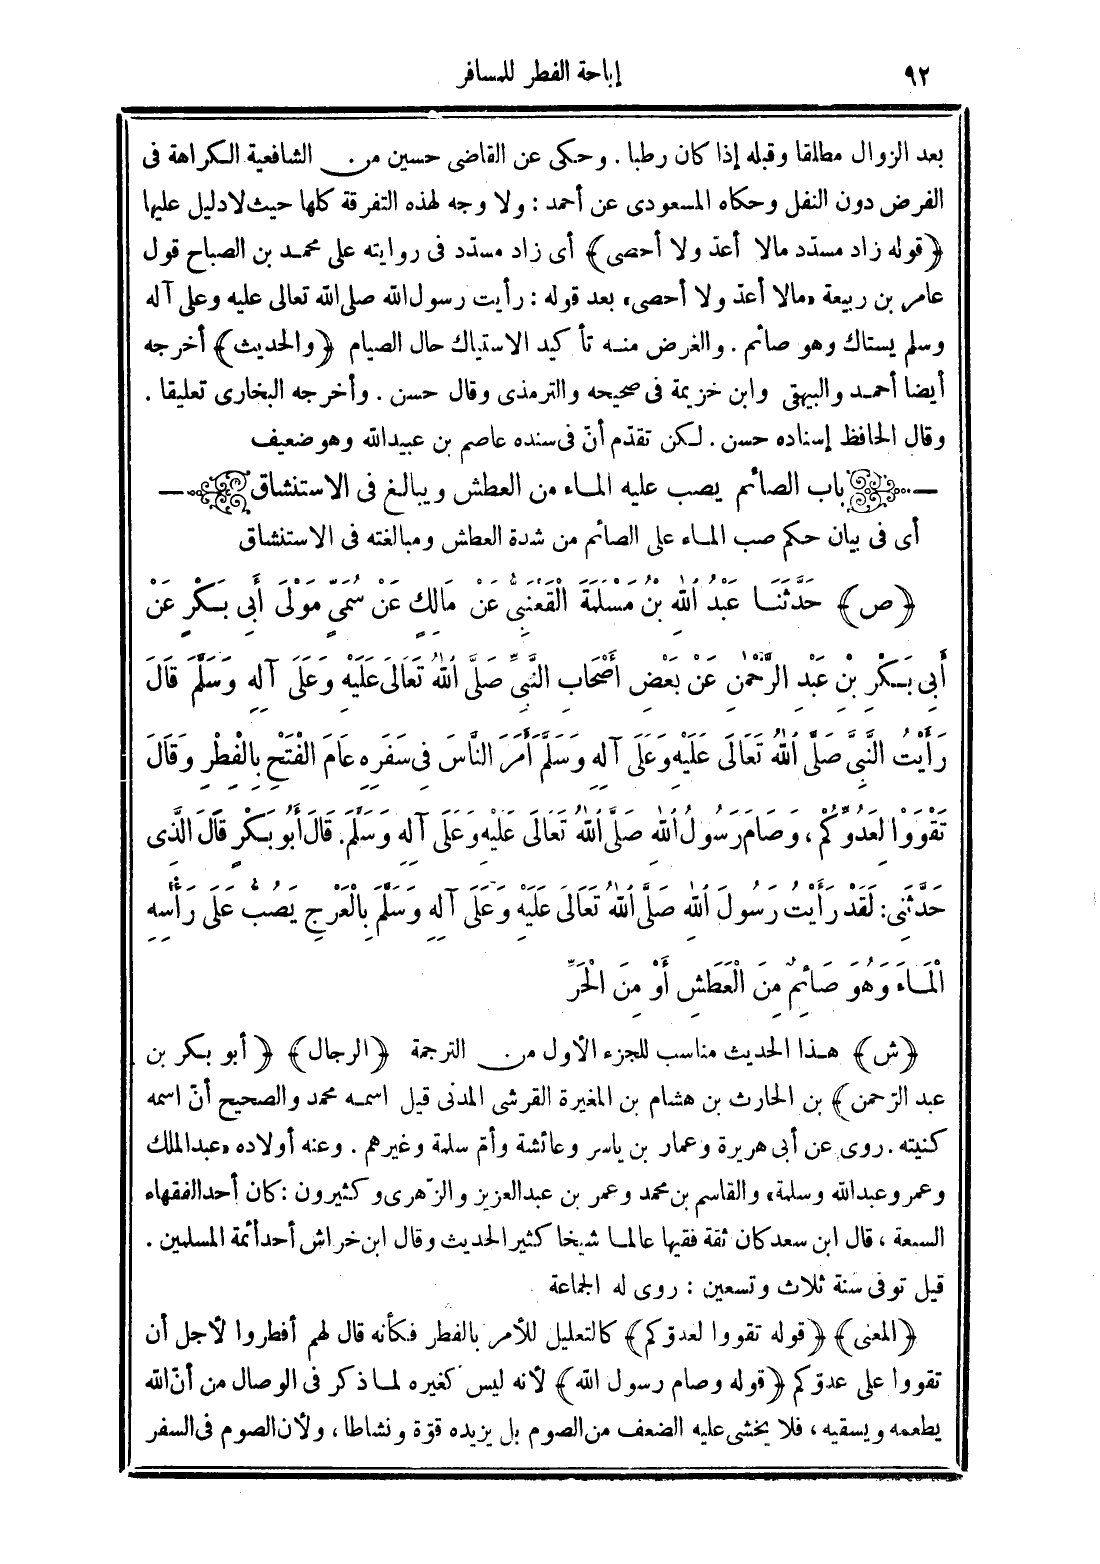 ٩٢
إباحة الفطر للمسافر
بعد الزوال مطلقا وقبله إذا كان رطبا . وحكى عن القاضى حسين من الشافعية الكراهة فى
الفرض دون النفل وحكاه المسعودى عن أحمد : ولا وجه لهذه التفرقة كلها حيث لا دليل عليها
﴿قوله زاد مسدّد مالا أعدّ ولا أحصى﴾ أى زاد مسدّد فى روايته على محمد بن الصباح قول
عامر بن ربيعة «مالا أعدّ ولا أحصى» بعد قوله : رأيت رسول الله صلى الله تعالى عليه وعلى آله
وسلم يستاك وهو صائم . والغرض منه تأكيد الاستياك حال الصيام ﴿والحديث﴾ أخرجه
أيضا أحمد والبيهقى وابن خزيمة فى صحيحه والترمذى وقال حسن . وأخرجه البخارى تعليقا .
وقال الحافظ إسناده حسن . لكن تقدّم أنّ فى سنده عاصم بن عبيد الله وهو ضعيف
باب الصائم يصب عليه الماء من العطش ويبالغ فى الاستنشاق
أى فى بيان حكم صب الماء على الصائم من شدة العطش ومبالغته فى الاستنشاق
﴿ص﴾ حَدَّثَنَا عَبْدُ اللهِ بْنُ مَسْلَمَةَ الْقَعْنَبِىُّ عَنْ مَالِكٍ عَنْ سُمَىٍّ مَوْلَى أَبِى بَكْرٍ عَنْ
أَبِى بَكْرِ بْنِ عَبْدِ الرَّحْمٰنِ عَنْ بَعْضِ أَصْحَابِ النَّبِىِّ صَلَّى اللهُ تَعَالَى عَلَيْهِ وَعَلَى آلِهِ وَسَلَّمَ قَالَ
رَأَيْتُ النَّبِىَّ صَلَّى اللهُ تَعَالَى عَلَيْهِ وَعَلَى آلِهِ وَسَلَّمَ أَمَرَ النَّاسَ فِى سَفَرِهِ عَامَ الْفَتْحِ بِالْفِطْرِ وَقَالَ
تَقْوَوْا لِعَدُوِّكُمْ ، وَصَامَ رَسُولُ اللهِ صَلَّى اللهُ تَعَالَى عَلَيْهِ وَعَلَى آلِهِ وَسَلَّمَ. قَالَ أَبُو بَكْرٍ قَالَ الَّذِى
حَدَّثَنِى: لَقَدْ رَأَيْتُ رَسُولَ اللهِ صَلَّى اللهُ تَعَالَى عَلَيْهِ وَعَلَى آلِهِ وَسَلَّمَ بِالْعَرْجِ يَصُبُّ عَلَى رَأْسِهِ
الْمَاءَ وَهُوَ صَائِمٌ مِنَ الْعَطَشِ أَوْ مِنَ الْحَرِّ
﴿ش﴾ هذا الحديث مناسب للجزء الأول من الترجمة ﴿الرجال﴾ ﴿أبو بكر بن
عبد الرّحمن﴾ بن الحارث بن هشام بن المغيرة القرشى المدنى قيل اسمه محمد والصحيح أنّ اسمه
كنيته . روى عن أبى هريرة وعمار بن ياسر وعائشة وأمّ سلمة وغيرهم . وعنه أولاده «عبد الملك
وعمر وعبد الله وسلمة» والقاسم بن محمد وعمر بن عبد العزيز والزّهرى وكثيرون : كان أحد الفقهاء
السبعة ، قال ابن سعد كان ثقة فقيها عالما شيخا كثير الحديث وقال ابن خراش أحد أئمة المسلمين .
قيل توفى سنة ثلاث وتسعين : روى له الجماعة
﴿المعنى﴾ ﴿قوله تقووا لعدوّكم﴾ كالتعليل للأمر بالفطر فكأنه قال لهم أفطروا لأجل أن
تقووا على عدوّكم ﴿قوله وصام رسول الله﴾ لأنه ليس كغيره لما ذكر فى الوصال من أنّ الله
يطعمه ويسقيه ، فلا يخشى عليه الضعف من الصوم بل يزيده قوّة ونشاطا ، ولأن الصوم فى السفر